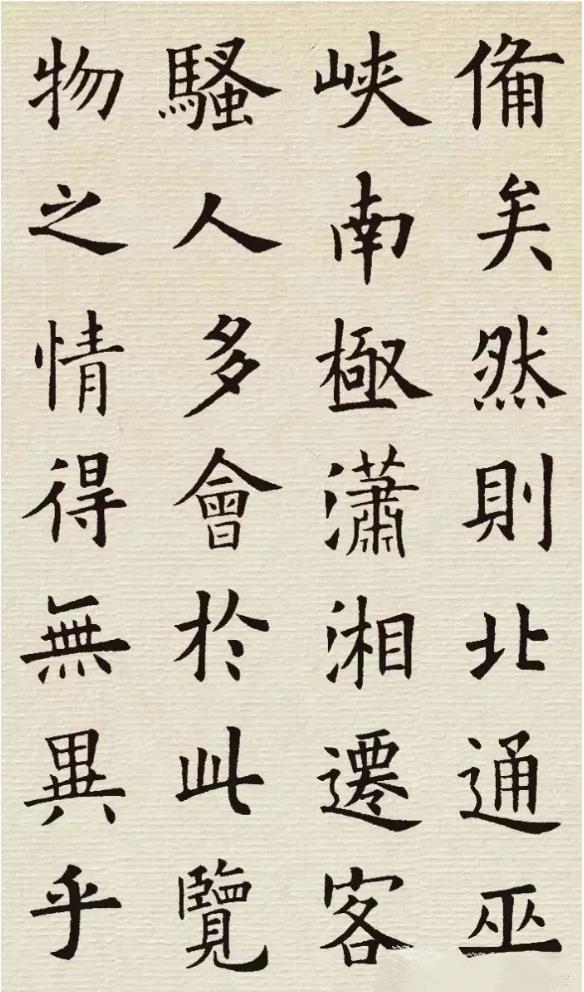 備矣然則北通巫
峽南極瀟湘遷客
騷人多會於此覽
物之情得無異乎